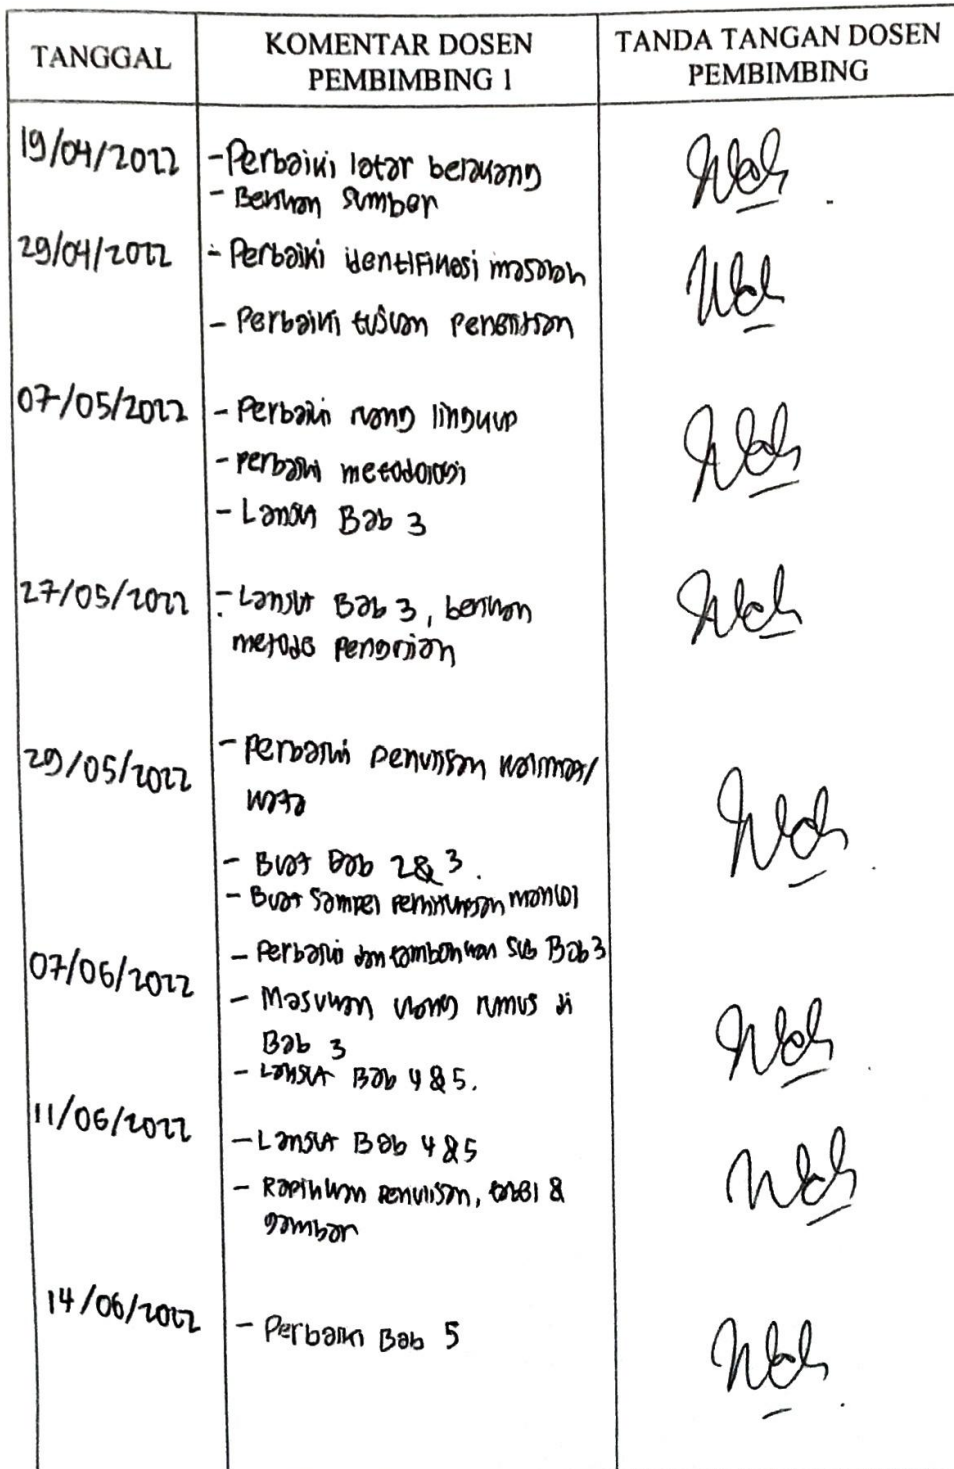 TANGGAL
KOMENTAR DOSEN
PEMBIMBING 1
TANDA TANGAN DOSEN
PEMBIMBING
19/04/2022
- Perbaiki latar belakang
- Berikan sumber
29/04/2022
- Perbaiki identifikasi masalah
- Perbaiki tujuan penelitian
07/05/2022
- Perbaiki ruang lingkup
- perbaiki metodologi
- Lanjut Bab 3
27/05/2022
- Lanjut Bab 3, berikan
metode pengujian
29/05/2022
- perbaiki penulisan kalimat/
kata
- Buat Bab 2 & 3.
- Buat sampel perhitungan manual
07/06/2022
- Perbaiki dan tambahkan sub Bab 3
- Masukan ulang rumus di
Bab 3
- Lanjut Bab 4 & 5.
11/06/2022
- Lanjut Bab 4 & 5
- Rapihkan penulisan, tabel &
gambar
14/06/2022
- Perbaiki Bab 5